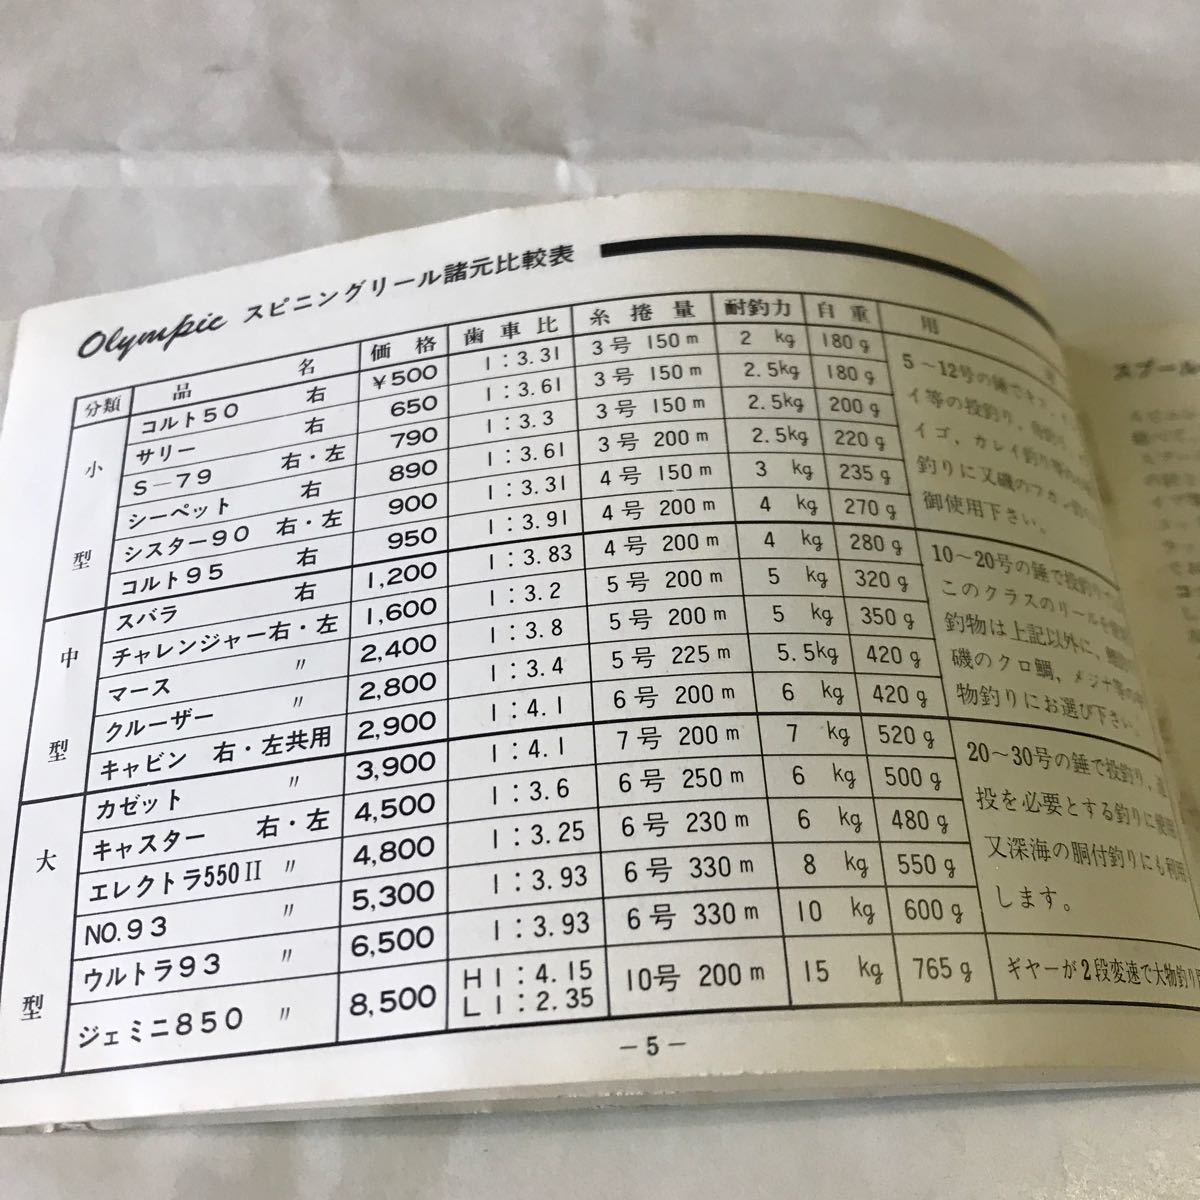 Olympic スピニングリール諸元比較表
分類 品名 価格 歯車比 糸捲量 耐釣力 自重 用
小型
コルト50 右 ¥500 1:3.31 3号 150m 2 kg 180g
サリー 右 650 1:3.61 3号 150m 2.5kg 180g
S-79 右・左 790 1:3.3 3号 150m 2.5kg 200g
シーペット 右 890 1:3.61 3号 200m 2.5kg 220g
シスター90 右・左 900 1:3.31 4号 150m 3 kg 235g
コルト95 右 950 1:3.91 4号 200m 4 kg 270g
5〜12号の錘でキス、
イ等の投釣り、
イゴ、カレイ釣り等
釣りに又磯のフカシ
御使用下さい。
中型
スバラ 右 1,200 1:3.83 4号 200m 4 kg 280g
チャレンジャー右・左 1,600 1:3.2 5号 200m 5 kg 320g
マース 〃 2,400 1:3.8 5号 200m 5 kg 350g
クルーザー 〃 2,800 1:3.4 5号 225m 5.5kg 420g
キャビン 右・左共用 2,900 1:4.1 6号 200m 6 kg 420g
10〜20号の錘で投釣り
このクラスのリールを
釣物は上記以外に、
磯のクロ鯛、メジナ等の
物釣りにお選び下さい。
大型
カゼット 〃 3,900 1:4.1 7号 200m 7 kg 520g
キャスター 右・左 4,500 1:3.6 6号 250m 6 kg 500g
エレクトラ550II 〃 4,800 1:3.25 6号 230m 6 kg 480g
NO.93 〃 5,300 1:3.93 6号 330m 8 kg 550g
ウルトラ93 〃 6,500 1:3.93 6号 330m 10 kg 600g
ジェミニ850 〃 8,500 H1:4.15 L1:2.35 10号 200m 15 kg 765g
20〜30号の錘で投釣り、遠
投を必要とする釣りに使用
又深海の胴付釣りにも利用
します。
ギヤーが2段変速で大物釣り
-5-
スプール